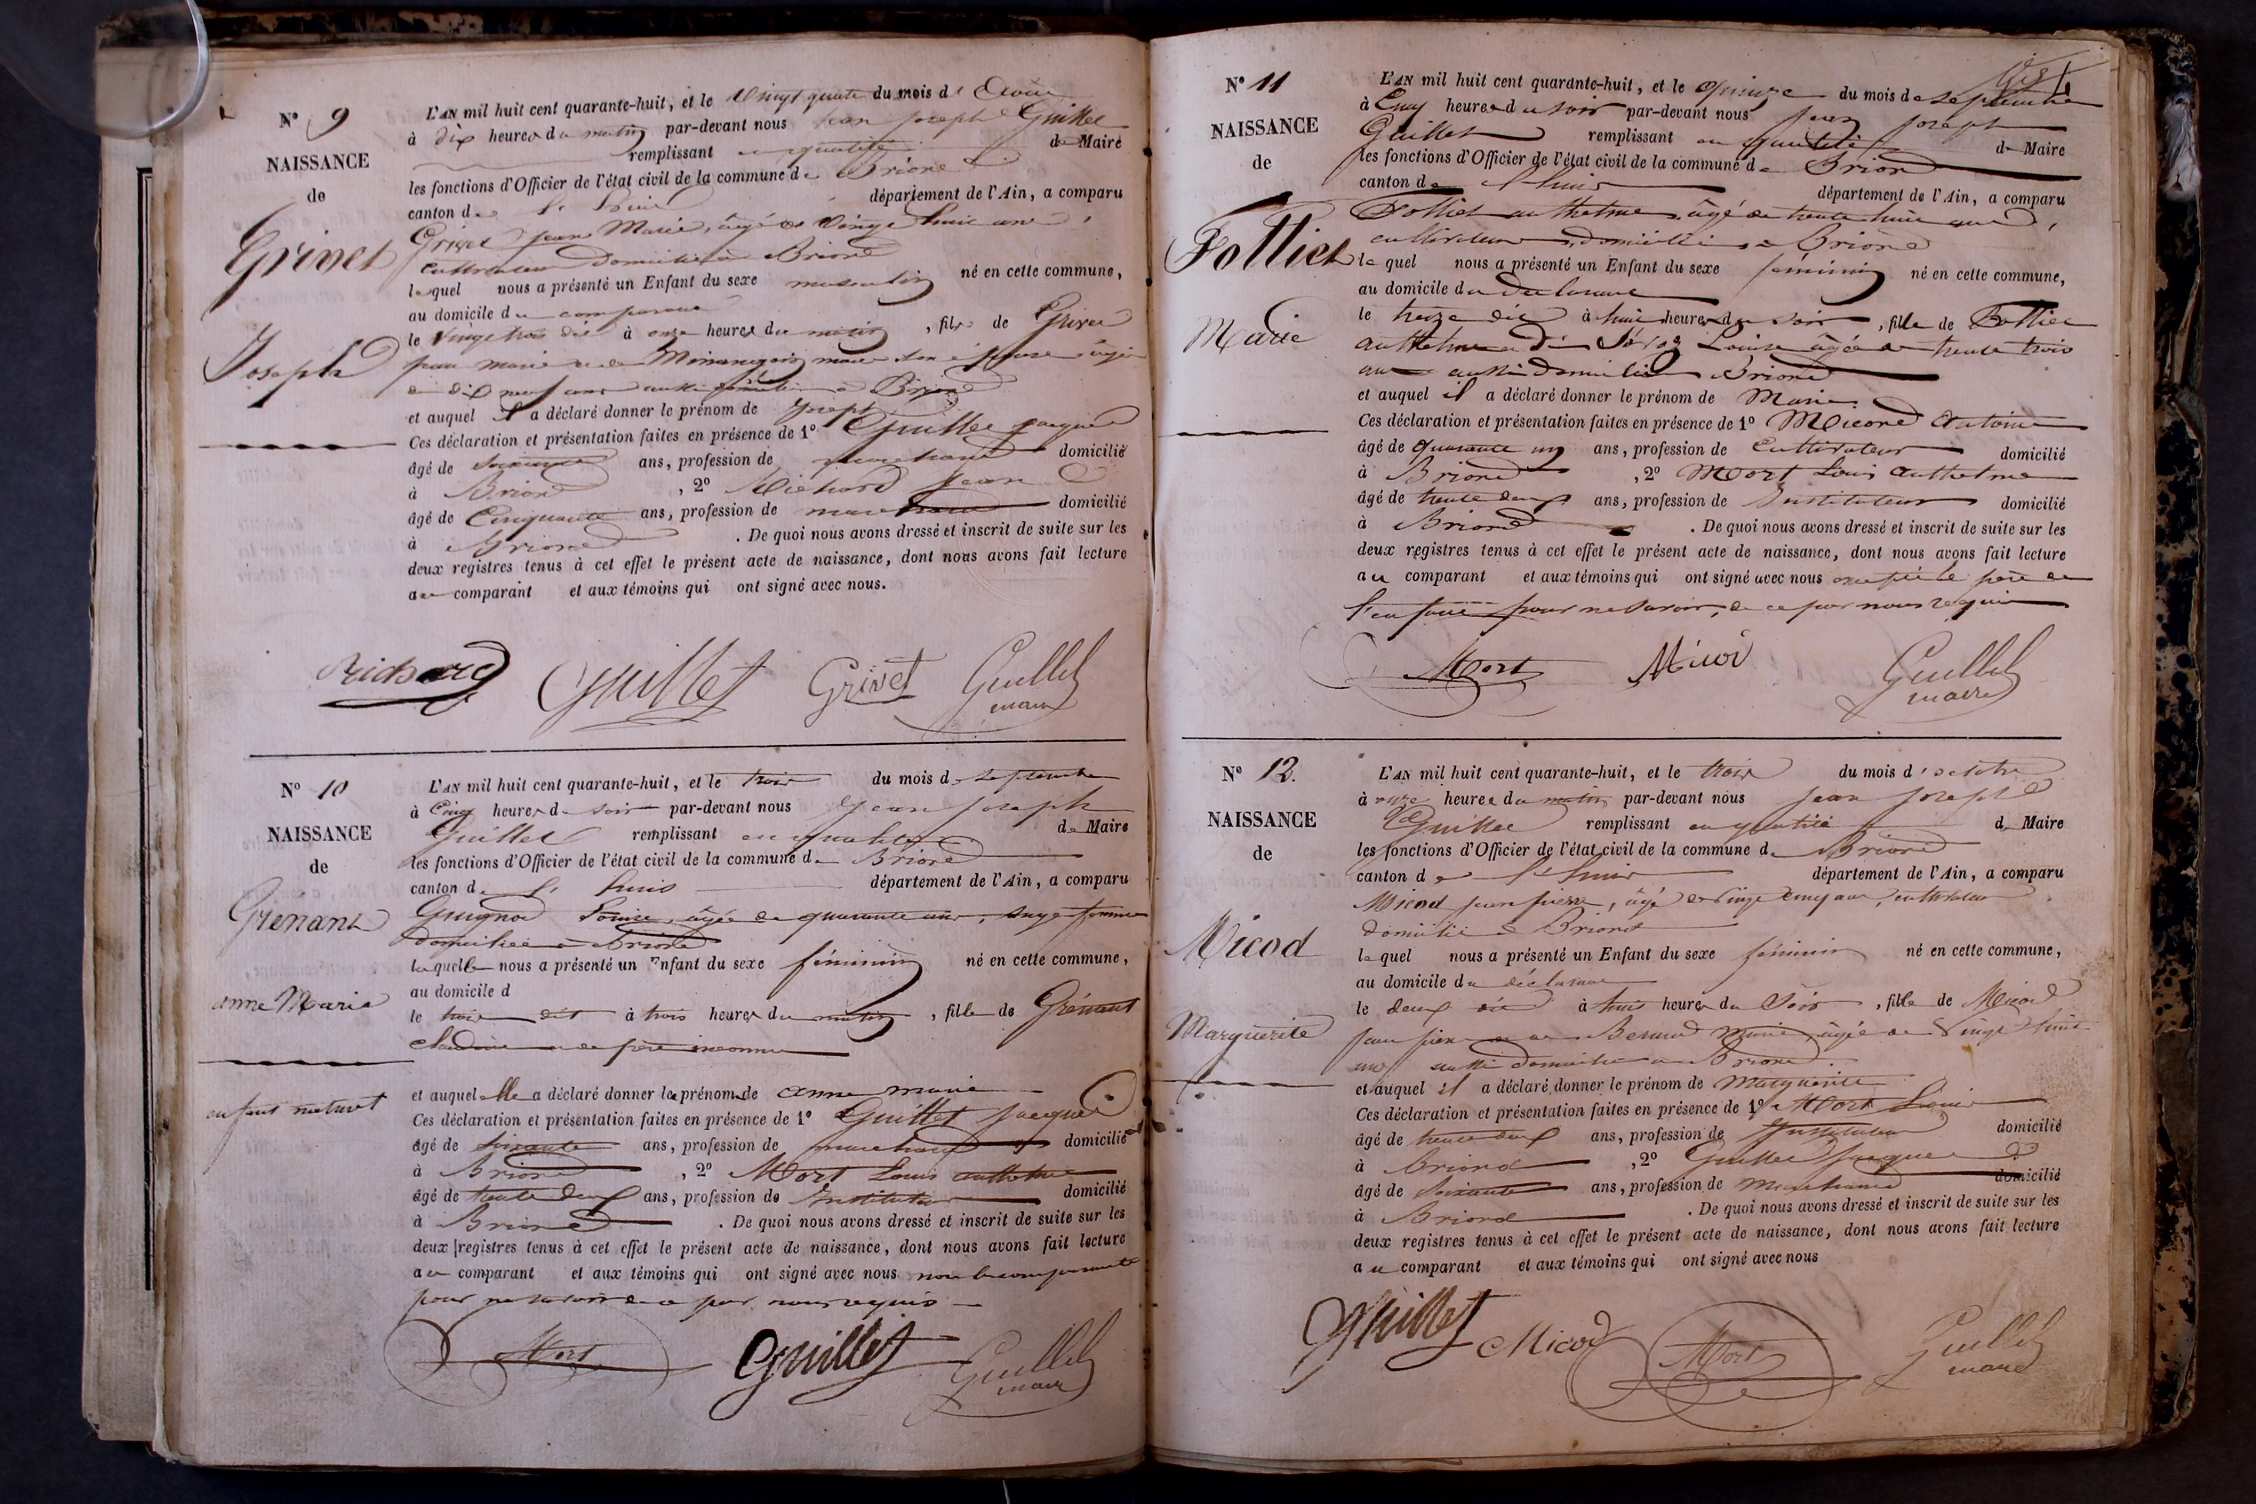 N° 9
NAISSANCE
de
Grinet
Joseph
L'AN mil huit cent quarante-huit, et le vingt quatre du mois d'Août
à dix heures du matin par-devant nous Jean Joseph Guillet
remplissant en qualité de Maire
les fonctions d'Officier de l'état civil de la commune de Briord
canton de département de l'Ain, a comparu
Grinet Jean Marie, âgé de vingt huit ans,
cultivateur domicilié à Briord
lequel nous a présenté un Enfant du sexe masculin né en cette commune,
au domicile du comparant
le vingt trois dit à onze heures du matin, fils de Grinet
Jean Marie et de Marie son épouse âgée
de dix neuf ans aussi domiciliée à Briord
et auquel il a déclaré donner le prénom de Joseph
Ces déclaration et présentation faites en présence de 1° Guillet Jacques
âgé de soixante ans, profession de marchand domicilié
à Briord, 2° Richard Jean
âgé de Cinquante ans, profession de marchand domicilié
à Briord. De quoi nous avons dressé et inscrit de suite sur les
deux registres tenus à cet effet le présent acte de naissance, dont nous avons fait lecture
au comparant et aux témoins qui ont signé avec nous.
Richard Guillet Grinet Guillet
maire
N° 10
NAISSANCE
de
Grénant
anne Marie
enfant naturel
L'AN mil huit cent quarante-huit, et le trois du mois de septembre
à Cinq heures du soir par-devant nous Jean Joseph
Guillet remplissant en qualité de Maire
les fonctions d'Officier de l'état civil de la commune de Briord
canton de département de l'Ain, a comparu
Louise, âgée de quarante ans, sage femme
domiciliée à Briord
laquelle nous a présenté un Enfant du sexe féminin né en cette commune,
au domicile d
le trois dit à trois heures du matin, fille de Grénant
Claudine et de père inconnu
et auquel elle a déclaré donner les prénoms de anne marie
Ces déclaration et présentation faites en présence de 1° Guillet Jacques
âgé de soixante ans, profession de marchand domicilié
à Briord, 2° Mort Louis anthelme
âgé de trente deux ans, profession de Instituteur domicilié
à Briord. De quoi nous avons dressé et inscrit de suite sur les
deux registres tenus à cet effet le présent acte de naissance, dont nous avons fait lecture
au comparant et aux témoins qui ont signé avec nous non la comparante
pour ne savoir de ce par nous requis
Mort Guillet Guillet
maire
N° 11
NAISSANCE
de
Folliet
Marie
L'AN mil huit cent quarante-huit, et le quinze du mois de septembre
à Cinq heures du soir par-devant nous Jean Joseph
Guillet remplissant en qualité de Maire
les fonctions d'Officier de l'état civil de la commune de Briord
canton de département de l'Ain, a comparu
Folliet anthelme, âgé de trente huit ans,
cultivateur, domicilié à Briord
lequel nous a présenté un Enfant du sexe féminin né en cette commune,
au domicile du déclarant
le treize dit à huit heures du soir, fille de Folliet
anthelme et de Louise âgée de trente trois
ans aussi domiciliée à Briord
et auquel il a déclaré donner le prénom de Marie
Ces déclaration et présentation faites en présence de 1° Micond Antoine
âgé de quarante un ans, profession de Cultivateur domicilié
à Briord, 2° Mort Louis anthelme
âgé de trente deux ans, profession de Instituteur domicilié
à Briord. De quoi nous avons dressé et inscrit de suite sur les
deux registres tenus à cet effet le présent acte de naissance, dont nous avons fait lecture
au comparant et aux témoins qui ont signé avec nous excepté le père de
l'enfant pour ne savoir, de ce par nous requis
Mort Guillet
maire
N° 12.
NAISSANCE
de
Micod
Marguerite
L'AN mil huit cent quarante-huit, et le trois du mois d'octobre
à onze heures du matin par-devant nous Jean Joseph
Guillet remplissant en qualité de Maire
les fonctions d'Officier de l'état civil de la commune de Briord
canton de département de l'Ain, a comparu
Micod Jean pierre, âgé de vingt cinq ans, cultivateur
domicilié à Briord
lequel nous a présenté un Enfant du sexe féminin né en cette commune,
au domicile du déclarant
le deux dit à trois heures du soir, fille de Micod
Jean pierre et de Marie, âgée de vingt huit
ans aussi domiciliée à Briord
et auquel il a déclaré donner le prénom de Marguerite
Ces déclaration et présentation faites en présence de 1° Mort Louis
âgé de trente deux ans, profession de Instituteur domicilié
à Briord, 2° Guillet Jacques
âgé de Soixante ans, profession de Marchand domicilié
à Briord. De quoi nous avons dressé et inscrit de suite sur les
deux registres tenus à cet effet le présent acte de naissance, dont nous avons fait lecture
au comparant et aux témoins qui ont signé avec nous
Guillet Micod Mort Guillet
maire